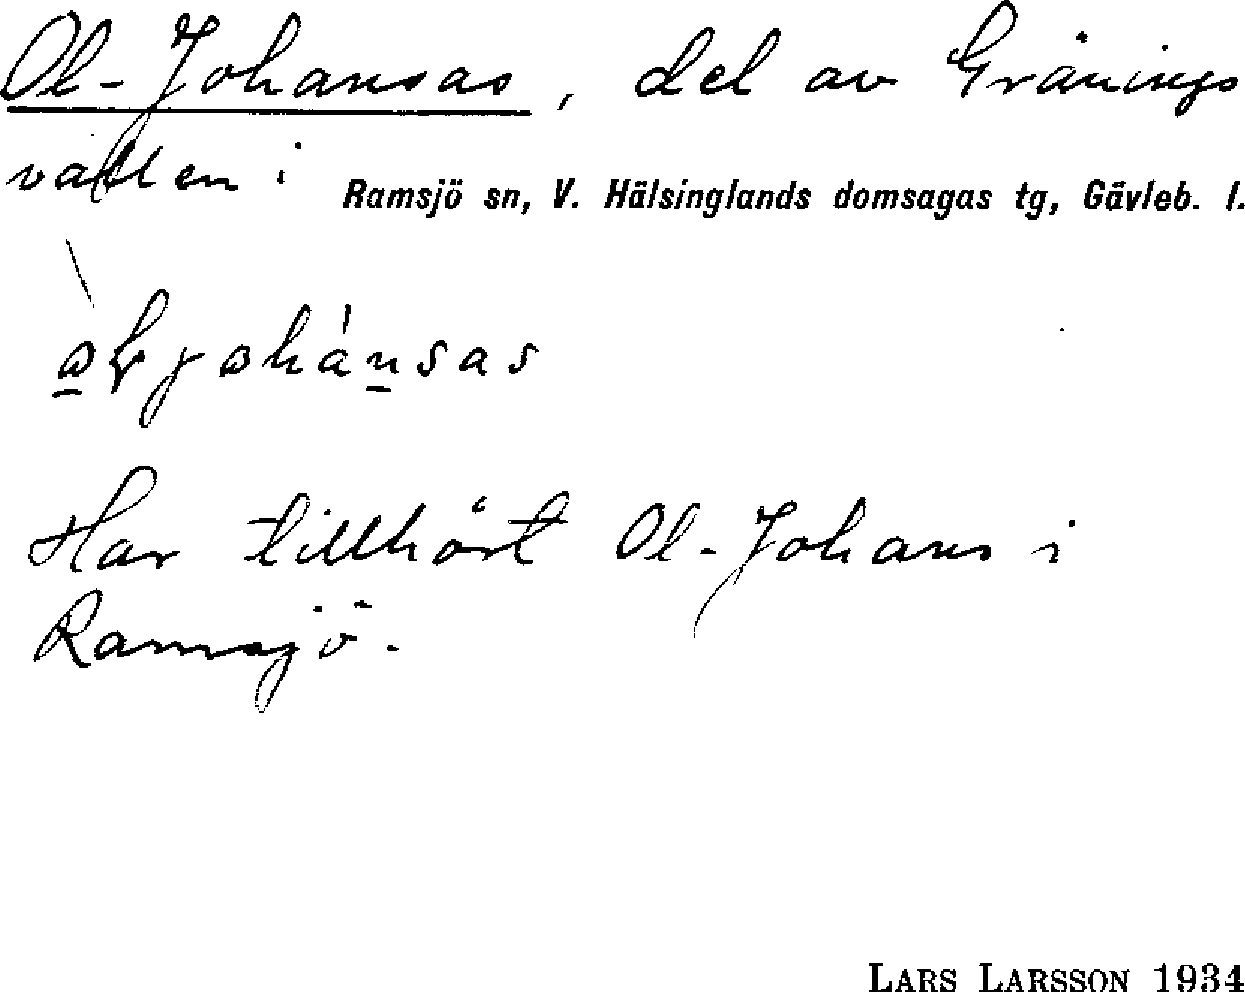 Ol-Johansas, del av Gränings
vallen i Ramsjö sn, V. Hälsinglands domsagas tg, Gävleb. l.
Har tillhört Ol-Johans i
Ramsjö.
LARS LARSSON 1934